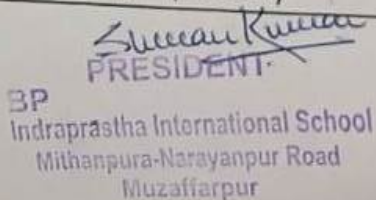 Suman Kumar
PRESIDENT
BP
Indraprastha International School
Mithanpura-Narayanpur Road
Muzaffarpur